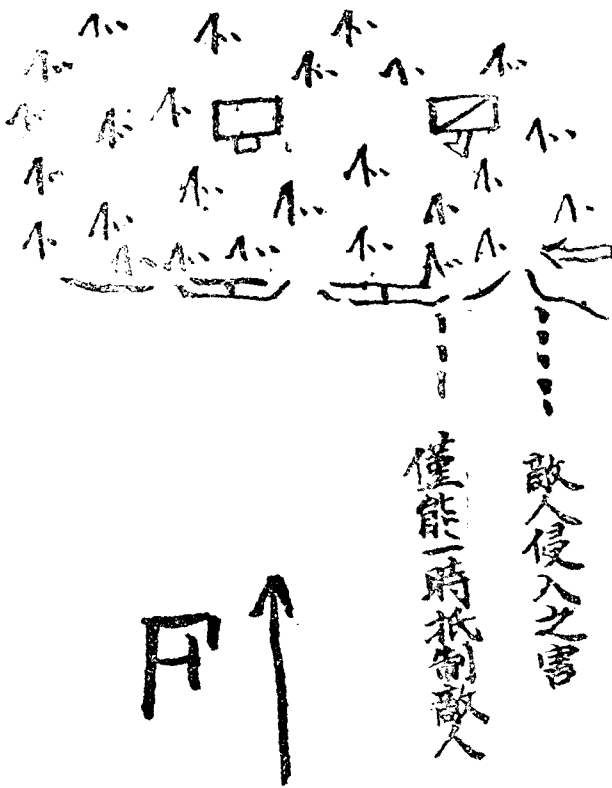 敵人侵入之害
僅能一時抵制敵人
F